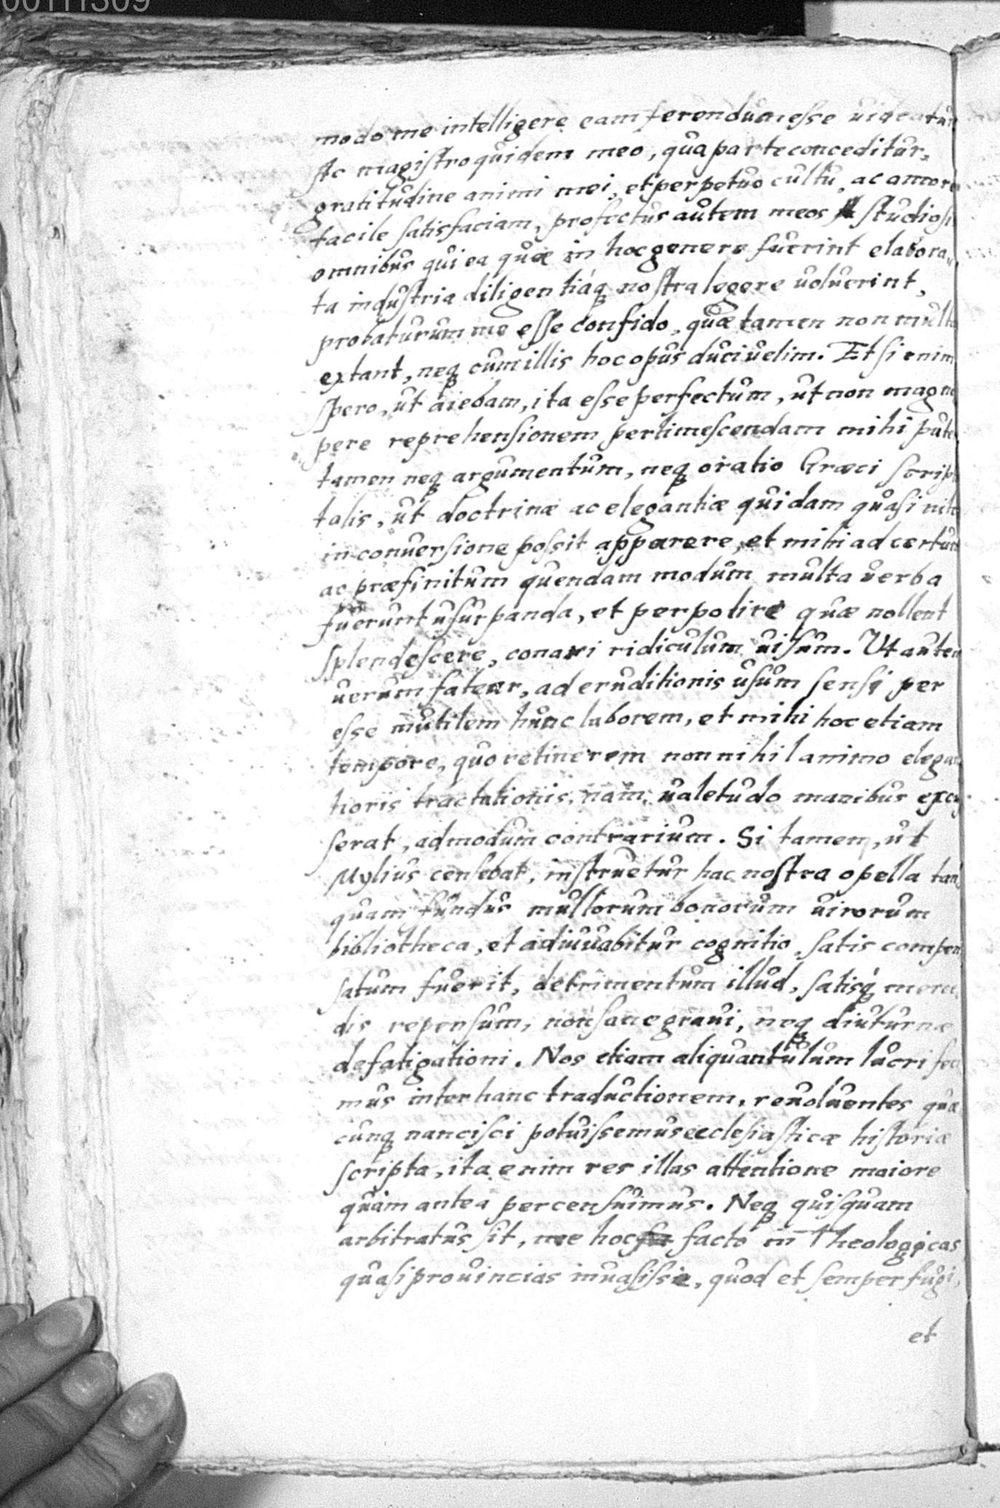 00111309
modo me intelligere eam ferendum esse uideatur
Ac magistro quidem meo, qua parte conceditur,
gratitudine animi mei, et perpetuo cultu, ac amore
facile satisfaciam, profectus autem meos studiosis
omnibus qui ea quæ in hoc genere fuerint elabora„
ta industria diligentiáq nostra legere uoluerint,
probaturum me esse confido, quæ tamen non multa
extant, neq cum illis hoc opus duci uelim. Et si enim
spero, ut aiebam, ita esse perfectum, ut non magno
pere reprehensionem pertimescendam mihi putem
tamen neq argumentum, neq oratio Græci script
talis, ut doctrinæ ac elegantiæ quidam quasi nitor
in conuersione possit apparere, et mihi ad certum
ac præfinitum quendam modum multa uerba
fuerunt usurpanda, et perpolire quæ nollent
splendescere, conari ridiculum uisum. Ut autem
uerum fatear, ad eruditionis usum sensi per
esse inutilem hunc laborem, et mihi hoc etiam
tempore, quo retinerem nonnihil animo elegan
tioris tractationis, nam ualetudo manibus excu
serat, admodum contrarium. Si tamen, ut
Mylius censebat, instruetur hac nostra opella tan
quam fundus multorum bonorum uirorum
bibliotheca, et adiuuabitur cognitio, satis compen
satum fuerit, detrimentum illud, satisq́ merce
dis repensum, non sane graui, neq diuturnæ
defatigationi. Nos etiam aliquantulum lucri feci
mus inter hanc traductionem, reuoluentes quæ
cunq nancisci potuissemus ecclesiasticæ historiæ
scripta, ita enim res illas attentione maiore
quàm antea percensuimus. Neq quisquam
arbitratus sit, me hoc facto in Theologicas
quasi prouincias inuasisse, quod et semper fugi,
et